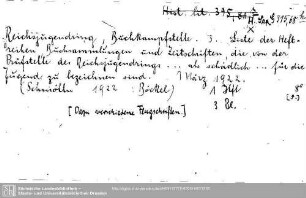 Hist. lit. 395, 61
H. Sax. 
395, 68
Reichsjugendring, Buchkampfstelle. 3. Liste der Heft-
reihen, Buchsammlungen und Zeitschriften, die von der
Prüfstelle des Reichsjugendrings ... als schädlich für die
Jugend zu bezeichnen sind. 1 März 1922.
(Schmölln 1922 : Böckel) 1 Heft 8°
3 Bl.
[Dazu verschiedene Flugschriften.]
Sächsische Landesbibliothek -
Staats- und Universitätsbibliothek Dresden